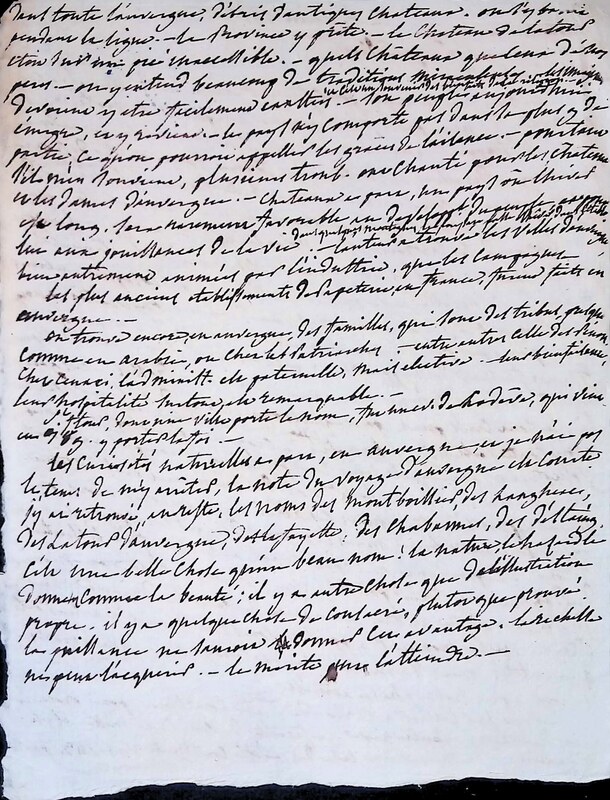 dans toute l'auvergne, débris d'antiques chateaux. on s'y battit
pendant la ligue. — la province y prête. — le chateau de la tour
étoit sur un pic inaccessible. — quels chateaux que ceux de nos
peres. — on y entend beaucoup de traditions
y etre facilement — son peuple aujourd'hui
émigre, et y revient. — le pays n'y comporte pas dans la plus g.de
partie, ce qu'on pourroit appeller les graces de l'aisance. — pourtant
s'il m'en souvient, plusieurs troub. ont chanté pour les chateaux
et les dames d'auvergne. — chateaux a part, un pays où l'hiver
est long, sera rarement favorable au développ.t du peuple et
lui aux jouissances de la vie — les villes d'auvergne
bien autrement animées par l'industrie, que les campagnes
les plus anciens etablissements de papeterie, en france, furent faits en
auvergne. —
on trouve encore, en auvergne, des familles, qui sont des tribus, presque
comme en arabie, ou chez les patriarches. — entre autres celle des
chez l'administ. est paternelle, mais elective — leur bienfaisance,
leur hospitalité surtout, est remarquable. —
s.t flour, dont une ville porte le nom, fut un ev. de Lodève, qui vint
en y porter la foi. —
les curiosités naturelles a part, en auvergne et je n'ai pas
le tems de m'y arrêter, la note du voyage d'auvergne est courte
j'y ai retrouvé, au reste, les noms des montboissier, des Langheac,
des Latour d'auvergne, des la fayette, des chabannes, des d'estaing
C'est une belle chose qu'un beau nom! la nature, le hazard le
donnent comme la beauté; il y a autre chose que de l'illustration
propre. il y a quelque chose de consacré, plutot que prouvé
la puissance ne sauroit donner cet avantage. la richesse
ne peut l'acquérir. — le merite peut l'atteindre. —